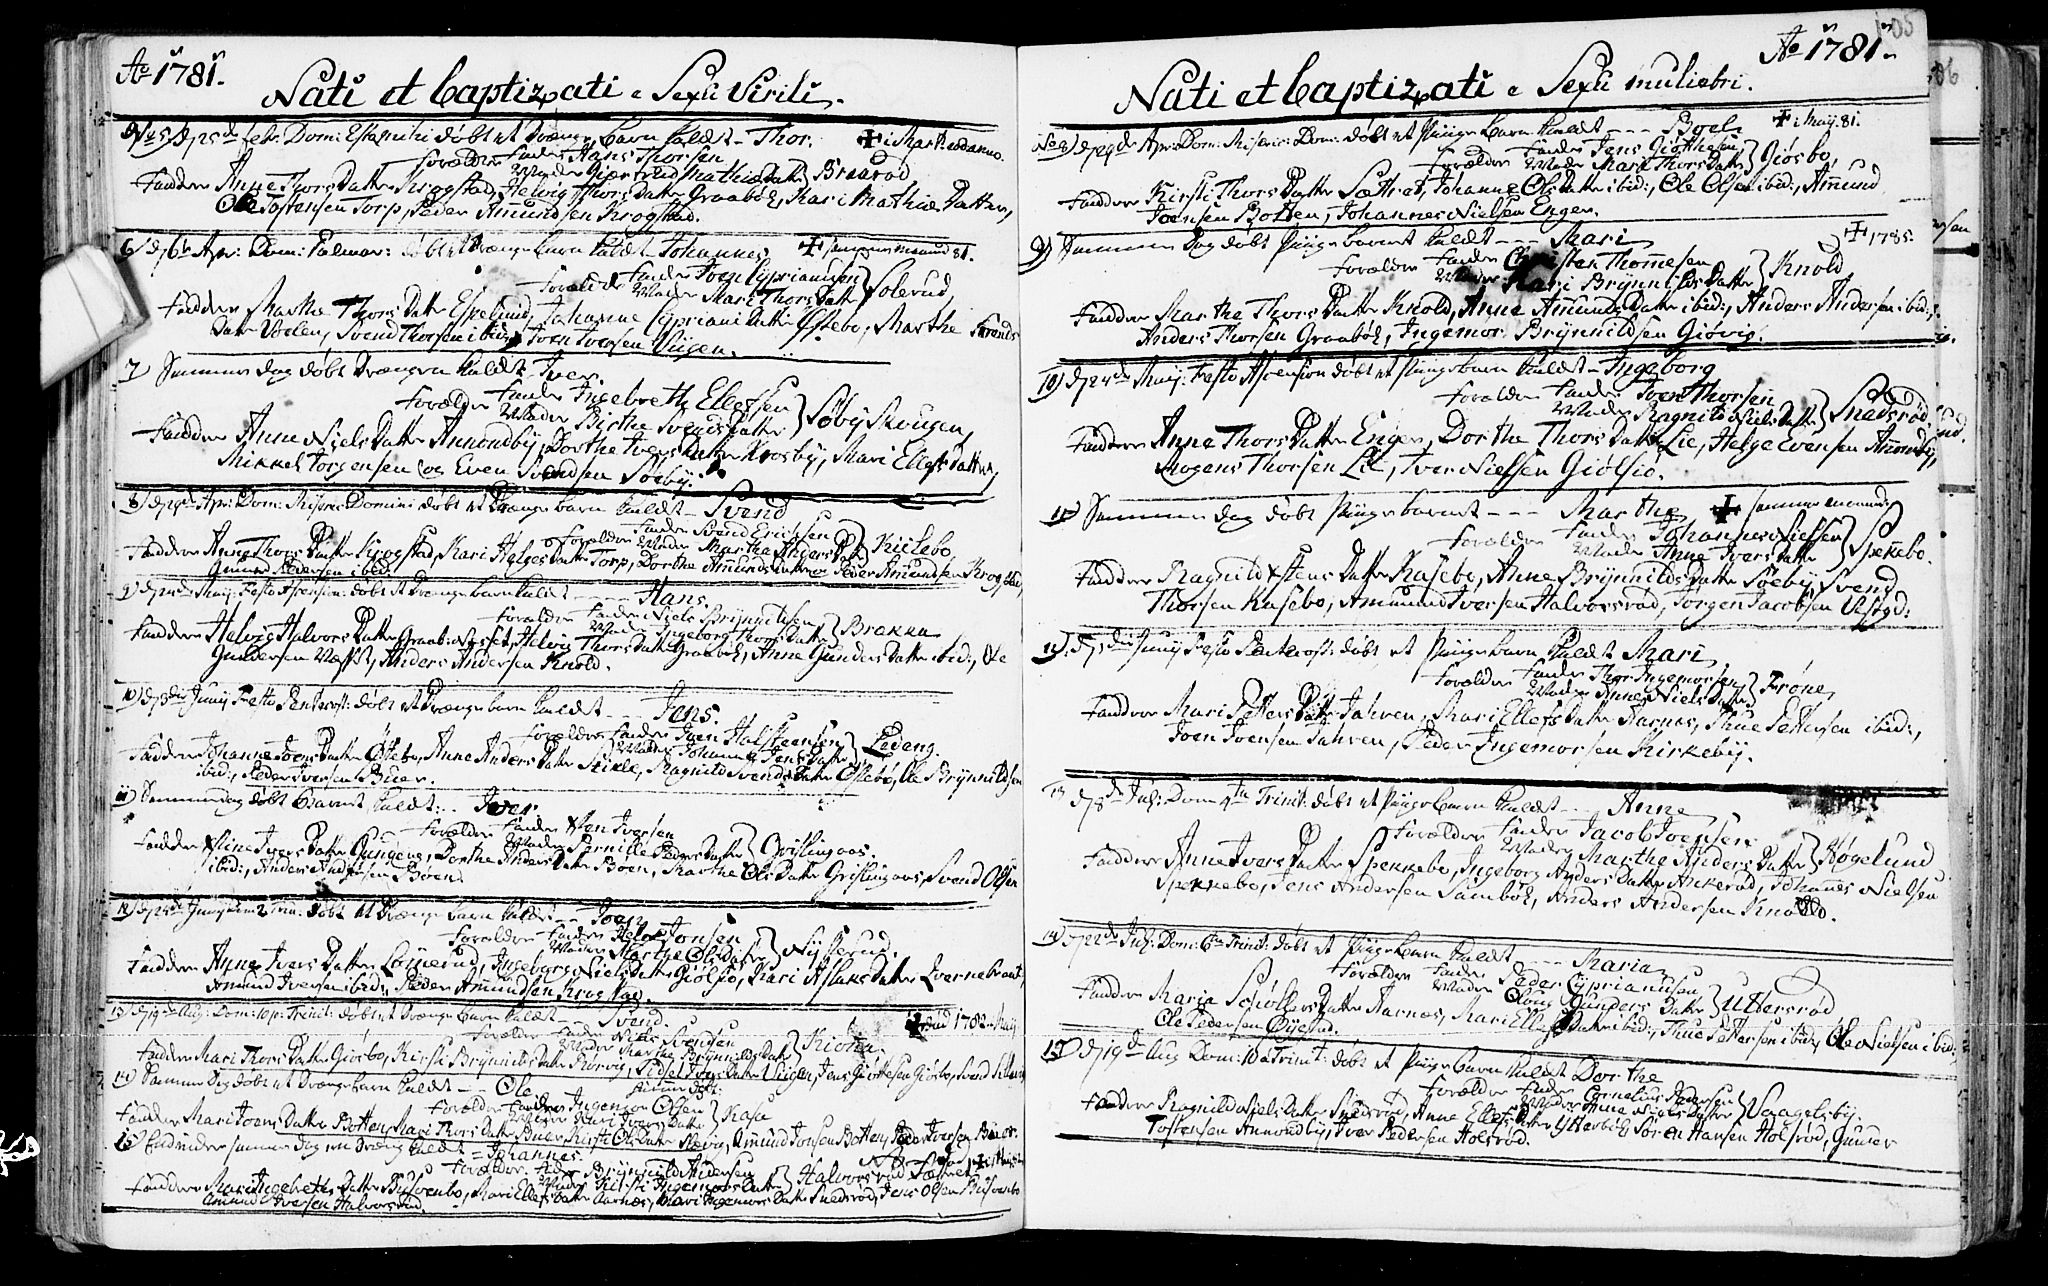 Ao 1781.
Nati et baptizati e Sexu Virili.
No 5) d. 25de Febr. Dom: Estomihi døbt et Drænge barn kaldt - Thor. ✝ i Mart. eod. anno.
Forældre Fader Hans Thorsen
Moder Giærtrud Mathiæ Datter } Braarød
Faddere Anne Thors Datter Krogstad, Helvig Thors Datter Graabøl, Kari Mathiæ Datter,
Ole Tostensen Torp, Peder Amundsen Krogstad.
6) d. 6te Apr: Dom: Palmar: døbt et Drænge barn kaldt Johannes ✝ samme maaned 81.
Forældre Fader Joen Cypriansen
Moder Mari Thors Datter } Solerud,
Faddere Marthe Thors Datter Espelund, Johanne Cypriani Datter Østebo, Marthe Svends
Datter Velen, Svend Thorsen ibid:, Iven Iversen Ulügen.
7) Samme dag døbt Drængen kaldt Iver.
Forældre Fader Ingebreth Ellefsen
Moder Birthe Svends Datter } Søby Skougen,
Faddere Anne Niels Datter Amondby, Dorthe Ivers Datter Krosby, Mari Ellefs Datter,
Mikkel Jørgensen og Even Svendsen Søeby.
8) d. 29de Apr: Dom: Miseric: Domini døbt et Drænge barn kaldt - Svend
Forældre Fader Svend Erichsen
Moder Marthe Anders D. } Kiilebo,
Faddere Anne Thors Datter Krogstad, Kari Helges Datter Torp, Dorthe Amunds Datter og Peder Amundsen Krogstad,
Gunner Pedersen ibid:
9) d. 24de Maij, Festo Ascension: døbt et Drænge barn kaldt --- Hans.
Forældre Fader Niels Brynnildsen
Moder Ingeborg Thors Datter } Brakka
Faddere Helvig Halvors Datter Graab: Nesset, Helvig Thors Datter Graabøl, Anne Gunders Datter ibid:, Ole
Gundersen, Anders Andersen Knold.
10) d. 3die Junij Festo Pentecost: døbt et Drænge barn kaldt --- Jens.
Forældre Fader Iven Halsteensen
Moder Johanne Jens Datter } Ledeng.
Faddere Johanne Joens Datter Østebo, Anne Anders Datter, Ragnild Svends Datter Østebø, Ole Brynnildsen
ibid:, Peder Iversen Buer.
11) Samme dag døbt Barnet kaldt:-- Iver
Forældre Fader Iversen
Moder Pernille Peders Datter } Grislingaas.
Faddere Stine Ivers Datter, Dorthe Anders Datter Boen, Marthe Ols Datter Grislingaas, Svend Olsen
ibid:, Anders Andersen Boen.
12) d. 24de Junij Dom: 2 Trin: døbt et Drænge barn kaldt -- Joen
Forældre Fader Helge Jonsen
Moder Marthe Ols Datter } Nysterud.
Faddere Anne Ivers Datter Lømerud, Ingeborg Niels Datter Giølsiø, Kari Aslaks Datter Qvernebraat,
Amund Iversen ibid:, Peder Amundsen Krogstad.
13) d. 19de Aug: Dom: 10 p: Trinit: døbt et Drænge barn kaldt -- Svend. ✝ død 1782 Maij
Forældre Fader Niels Svendsen
Moder Marthe Brynnilds Datter }
Faddere Mari Thors Datter Giøsbo, Kirsti Brynnilds Datter, Jens Giøthesen Giøsbo,
14) Samme Dag døbt et Drænge barn kaldt --- Ole
Forældre Fader Ingemor Olsen
Moder Kari Ivers Datter } Kasa
Faddere Mari Joens Datter Botten, Mari Thors Datter Buer, Kirsti Ols Datter, Amund Jonsen Botten, Peder Iversen Buer.
15) Endvidere samme dag en Dræng kaldt = Johannes.
Forældre Fader Brynnild Andersen
Moder Kirsti Ingemors Datter } Halvorsrød
Faddere Mari Ingebreths Datter Busvenbo, Mari Ellefs Datter Aarnæs, Mari Ingemors Datter Snedsrød, Jens Olsen Busvenbo
Amund Iversen Halvorsrød.
105
Ao 1781.
Nati et baptizati e Sexu muliebri.
No 8) d. 29de Apr: Dom: Miseric: Dom: døbt et Pige barn kaldt --- Boel. ✝ i Maij. 81.
Forældre Fader Jens Giøthesen
Moder Mari Thors Datter } Giøsbo,
Faddere Kirsti Thors Datter Sættret, Johanne Ols Datter ibid:, Ole Olsen ibid:, Amund
Joensen Botten, Johannes Nielsen Enger.
9) Samme Dag døbt Pige barnet kaldt --- Mari ✝ 1785.
Forældre Fader Christen Thommesen
Moder Kari Brynnilds Datter } Knold,
Faddere Marthe Thors Datter Knold, Anne Amunds Datter ibid:, Anders Andersen ibid:,
Anders Thorsen Graabøl, Ingemor Brynnildsen Giøvig.
10) d. 24de Maij: Festo Ascension døbt et Pige barn kaldt - Ingeborg
Forældre Fader Iver Thorsen
Moder Ragnild Niels Datter } Snedsrød.
Faddere Anne Thors Datter Enger, Dorthe Thors Datter Lie, Helge Evensen Amondby,
Mogens Thorsen Lie, Iver Nielsen Giølsiø.
11) Samme dag døbt Pige barnet --- Marthe ✝ samme maaned
Forældre Fader Johannes Nielsen
Moder Anne Ivers Datter } Spekkebo.
Faddere Ragnild Stens Datter Kasebo, Anne Brynnilds Datter Søeby, Svend
Thorsen Kasebo, Amund Iversen Halvorsrød, Jørgen Jacobsen
12) d. 3die Junij Festo Pentecost: døbt et Pige barn kaldt Mari
Forældre Fader Thor Ingemorsen
Moder Anne Niels Datter } Frøne,
Faddere Mari Petters Datter Jahren, Mari Ellefs Datter Aarnæs, Thue Pettersen ibid:,
Joen Ivensen Jahren, Peder Ingemorsen Kirkeby.
13 d. 8de Jul: Dom: 4ta Trinit: døbt et Pige barn kaldt --- Anne
Forældre Fader Jacob Joensen
Moder Marthe Anders Datter } Høgelund
Faddere Anne Ivers Datter Spekkebo, Ingeborg Anders Datter Ankerød, Johannes Nielsen
Spekkebo, Jens Andersen Sambøl, Anders Andersen Knold.
14) d. 22de Jul: Dom: 6ta Trinit: døbt et Pige barn kaldt --- Maria
Forældre Fader Peder Cypriansen
Moder Oloug Gunders Datter } Uttersrød
Faddere Maria Schøttlers Datter Aarnæs, Mari Ellefs Datter ibid:, Thue Pettersen ibid:, Ole Nielsen ibid:,
Ole Pedersen Øijesud.
15) d. 19de Aug Dom: 10 a Trinit: døbt et Pige barn kaldt Dorthe
Forældre Fader Cornelius Pedersen
Moder Anne Niels Datter } Saagelsby.
Faddere Ragnild Niels Datter Snedsrød, Anne Ellefs Datter, Søren Hansen Holsrød, Gunder
Tostensen Amondby, Iver Pedersen Holsrød.